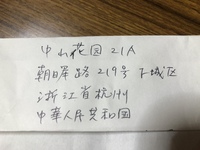 中山花园 21A
朝晖路 219号 下城区
浙江省杭州
中華人民共和国